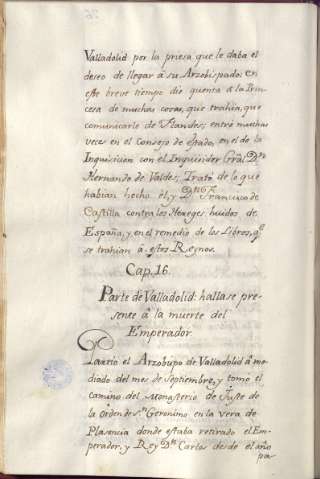 Valladolid por la priesa que le daba el
deseo de llegar á su Arzobispado: en
este breve tiempo dio quenta á la Prin-
cesa de muchas cosas, que trahia, que
comunicarle de Flandes; entró muchas
veces en el Consejo de Estado, en el de la
Inquisicion con el Inquisidor Gral. Dn.
Hernando de Valdes; Trató de lo que
habian hecho él, y Dn. Francisco de
Castilla contra los Hereges huidos de
España, y en el remedio de los Libros, qe.
se trahian á estos Reynos.
Cap. 16.
Parte de Valladolid: hallase pre-
sente á la muerte del
Emperador.
el Arzobispo de Valladolid á me-
diado del mes de Septiembre, y tomó el
camino del Monasterio de Juste de
la Orden de Sn. Geronimo en la vera de
Plasencia donde estaba retirado el Em-
perador, y Rey Dn. Carlos desde el año
pa-